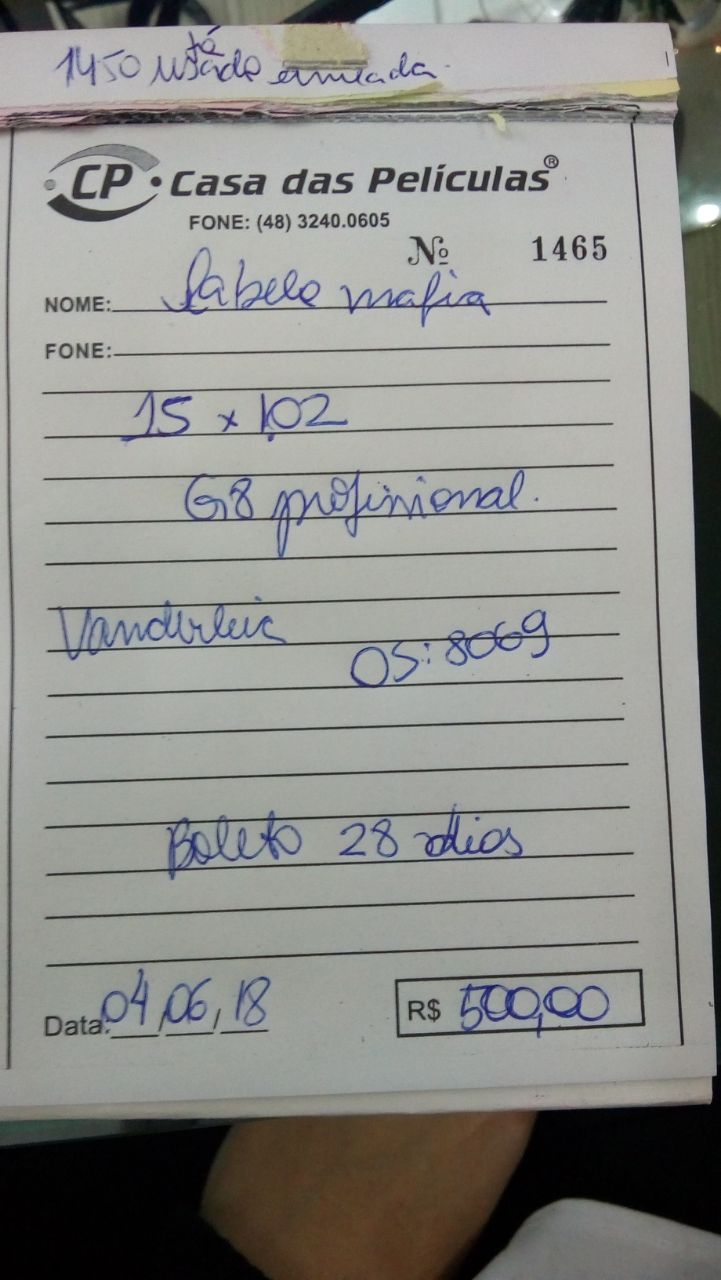 1450 tá
CP • Casa das Películas®
FONE: (48) 3240.0605
Nº 1465
NOME: mafia
FONE:
15 x 1,02
G8 profissional.
Vanderleia
OS: 8069
Boleto 28 dias
Data: 04/06/18
R$ 500,00